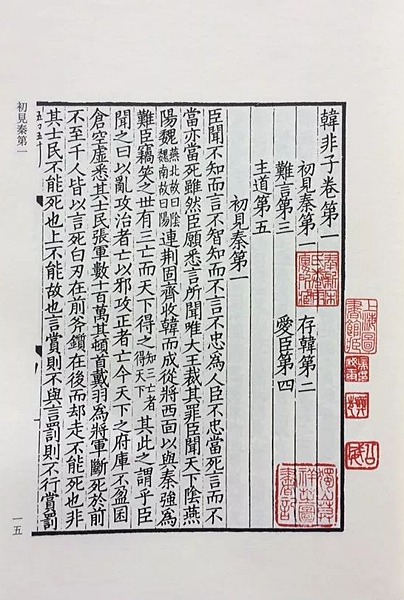 韓非子卷第一
初見秦第一 存韓第二
難言第三 愛臣第四
主道第五
初見秦第一
臣聞不知而言不智知而不言不忠為人臣不忠當死言而不
當亦當死雖然臣願悉言所聞唯大王裁其罪臣聞天下陰燕
陽魏燕北故曰陰魏南故曰陽連荊固齊收韓而成從將西面以與秦強為
難臣竊笑之世有三亡而天下得之知三亡者得天下其此之謂乎臣
聞之曰以亂攻治者亡以邪攻正者亡今天下之府庫不盈囷
倉空虛悉其士民張軍數十百萬其頓首戴羽為將軍斷死於前
不至千人皆以言死白刃在前斧鑕在後而却走不能死也非
其士民不能死也上不能故也言賞則不與言罰則不行賞罰
初見秦第一
一五